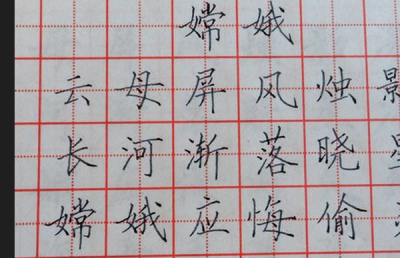 嫦娥
云母屏风烛影
长河渐落晓星
嫦娥应悔偷